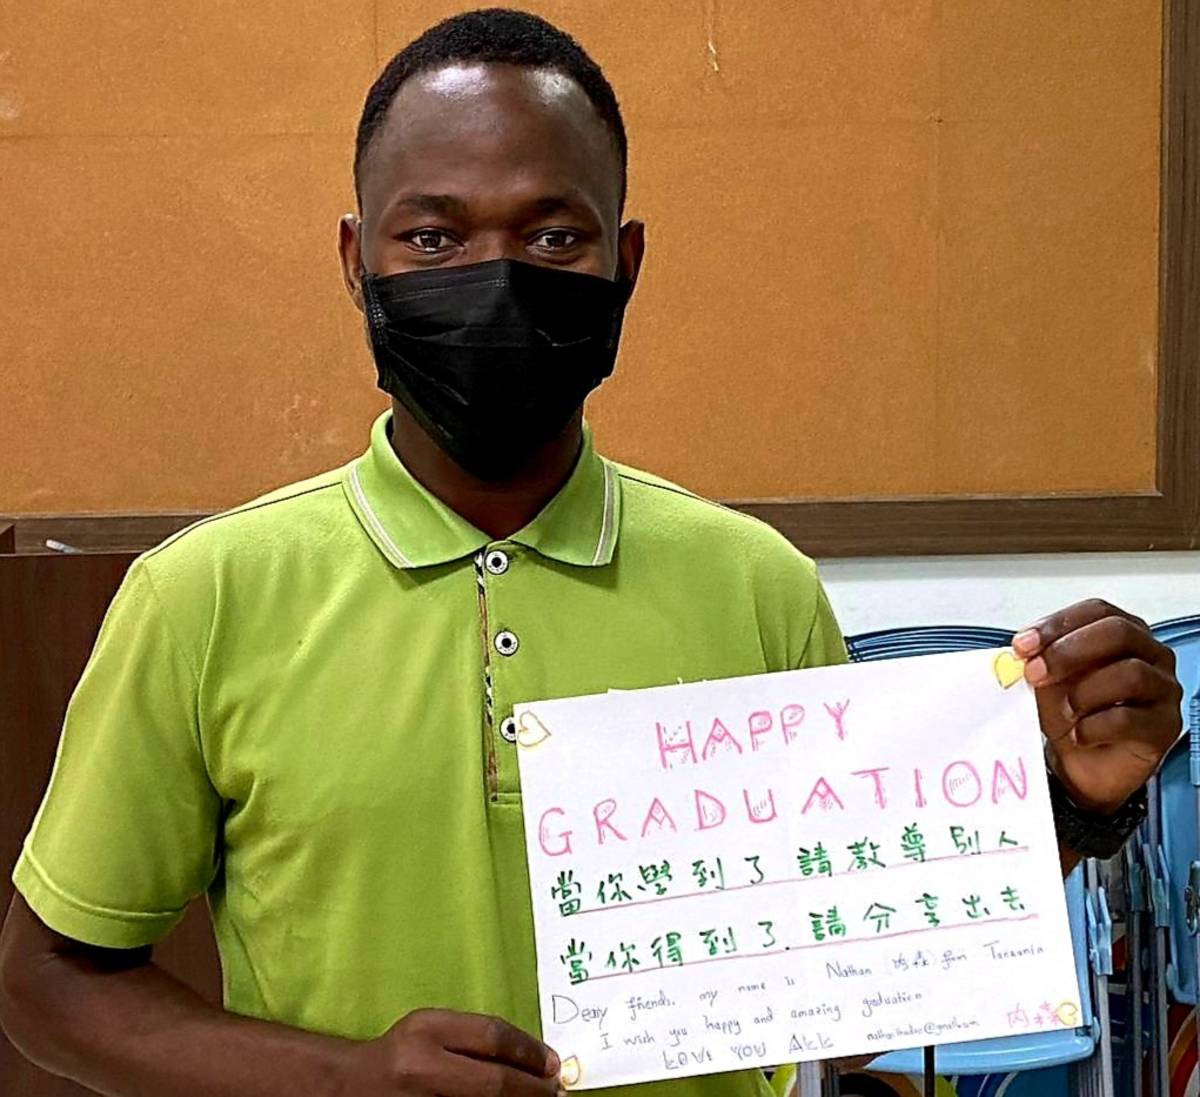 HAPPY
GRADUATION
當你學到了請教導別人
當你得到了.請分享出去
Deary friends. my name is Nathan from Tanzania
I wish you happy and amazing graduation
LOVE YOU ALL